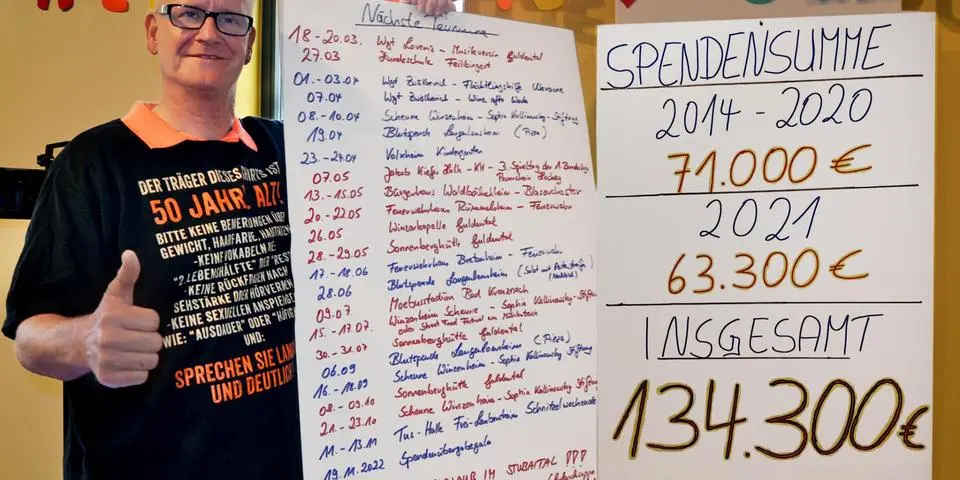 DER TRÄGER DIESES IST
50 JAHRE ALT!
BITTE KEINE BEMERKUNGEN ÜBER
GEWICHT, HAARFARBE,
-KEINE VOKABELN WIE:
"2. LEBENSHÄLFTE" DER "REST
-KEINE RÜCKFRAGEN NACH
SEHSTÄRKE ODER HÖRVERM
-KEINE SEXUELLEN ANSPIE
WIE: "AUSDAUER" ODER "HÄUFIG
UND:
SPRECHEN SIE LAN
UND DEUTLICH
Nächste Termine
18-20.03. Wgt Lorenz - Musikverein Guldental
27.03 Hundeschule Feilbingert
01.-03.04 Wgt Zwölberich - Flüchtlingshilfe Ukraine
07.04 Wgt Zwölberich - Wine after Work
08.-10.04 Scheune Winzenheim - Sophia Kallinowsky-Stiftung
19.04 Blutspende Langenlonsheim (Pizza)
23.-24.04 Volxheim Kindergarten
07.05 Jakob Kiefer Halle - KH - 3. Spieltag der 1. Bundesliga
Hockey
13.-15.05 Bürgerhaus Waldböckelheim - Blasorchester
20.-22.05 Feuerwehrhaus Rümmelsheim - Feuerwehr
26.05 Winzerkapelle Guldental
28.-29.05 Sonnenberghütte Guldental
17.-18.06 Feuerwehrhaus Bretzenheim - Feuerwehr
28.06 Blutspende Langenlonsheim
09.07 Moebusstadion Bad Kreuznach
15.-17.07. Winzenheim Scheune - Sophia Kallinowsky-Stiftung
oder Street Food Festival
30.-31.07 Sonnenberghütte Guldental
06.09 Blutspende Langenlonsheim (Pizza)
16.-18.09 Scheune Winzenheim - Sophia Kallinowsky Stiftung
08.-09.10 Sonnenberghütte Guldental
21.-23.10 Scheune Winzenheim - Sophia Kallinowsky Stiftung
11.-13.11 Tus-Halle Schnitzelwochenende
19.11.2022 Spendenübergabegala
IM STUBAITAL
SPENDENSUMME
2014 - 2020
71.000 €
2021
63.300 €
INSGESAMT
134.300 €